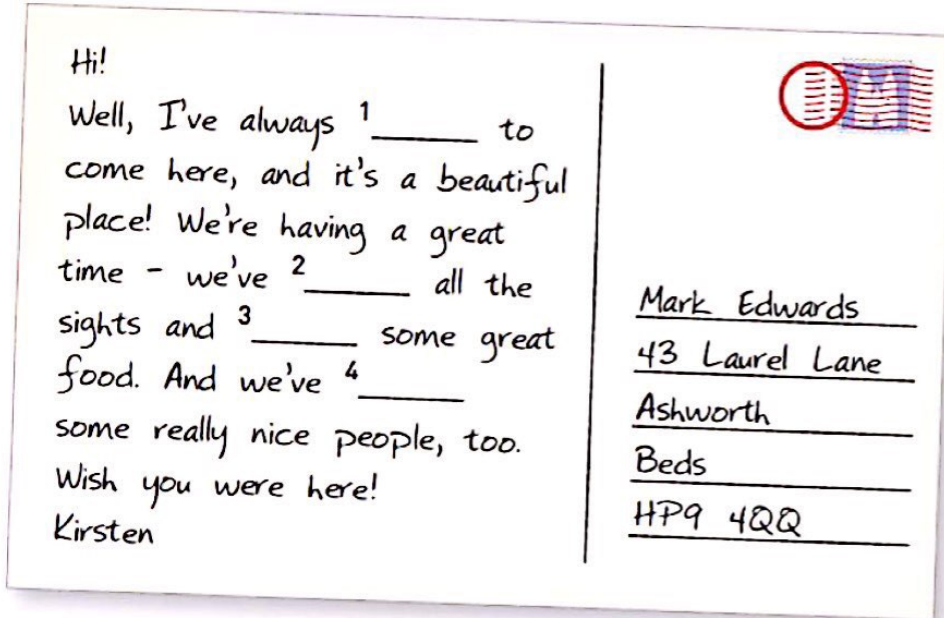 Hi!
Well, I've always 1______ to
come here, and it's a beautiful
place! We're having a great
time - we've 2______ all the
sights and 3______ some great
food. And we've 4______
some really nice people, too.
Wish you were here!
Kirsten
Mark Edwards
43 Laurel Lane
Ashworth
Beds
HP9 4QQ